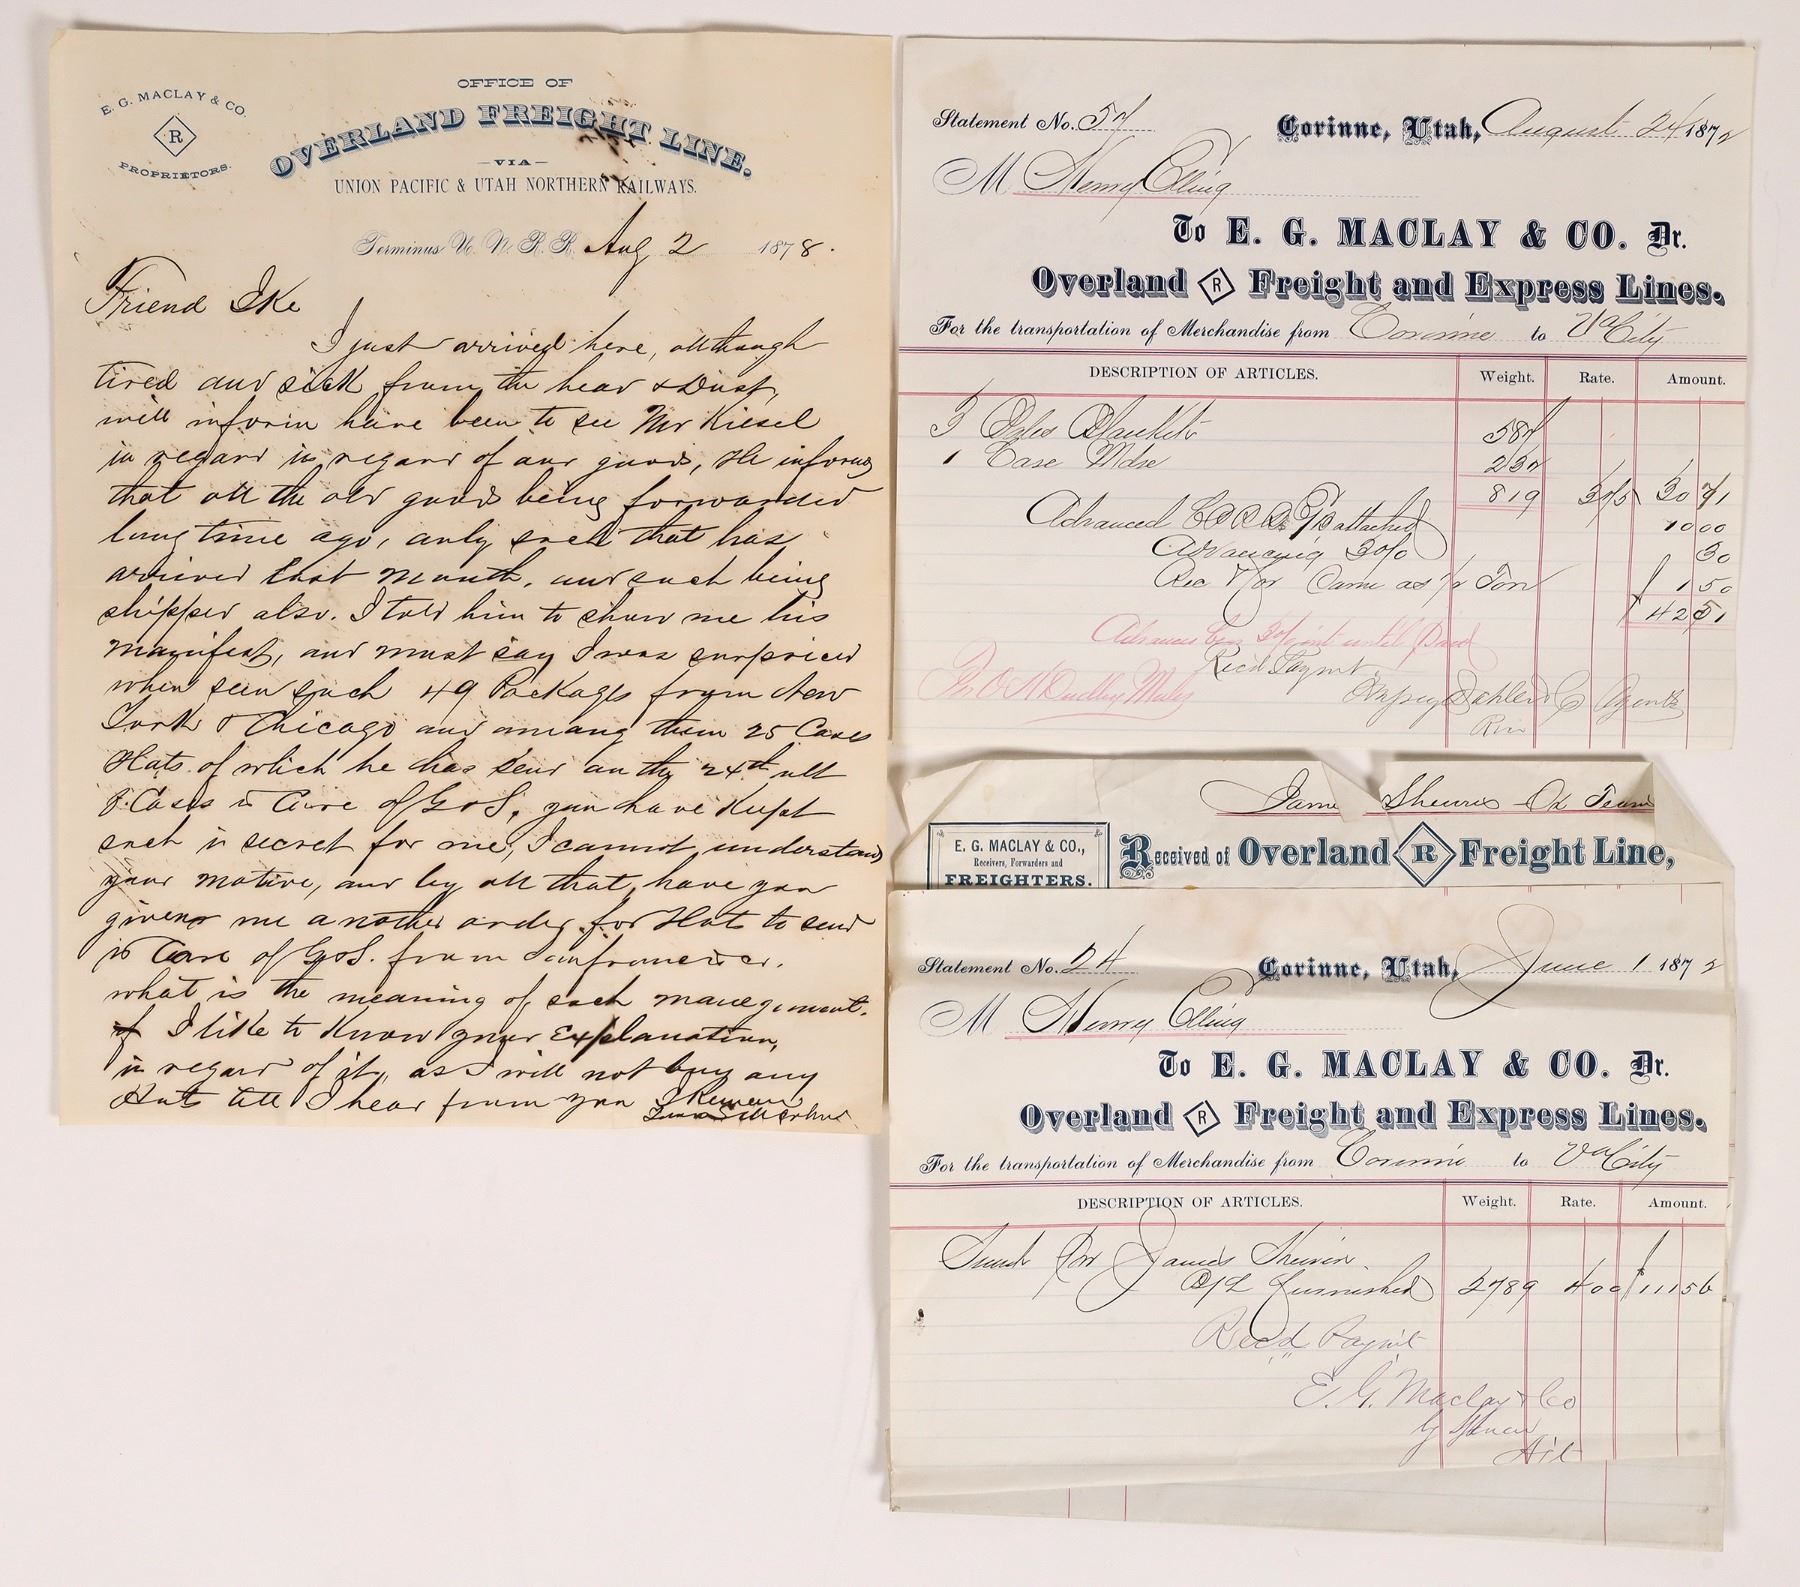 E. G. MACLAY & CO.
R
PROPRIETORS.
OFFICE OF
OVERLAND FREIGHT LINE.
—VIA—
UNION PACIFIC & UTAH NORTHERN RAILWAYS.
Terminus U. N. R. R. Aug 2 1878.
Friend Ike
I just arrived here, although
tired and sick from the heat & Dust,
will inform have been to see Mr Kiesel
in regard in regard of our goods, He informs
that all the old goods being forwarded
long time ago, only such that has
arrived last month, and such being
shipped also. I told him to show me his
manifest, and must say I was surpriced
when seen such 49 Packages from New
York & Chicago and among them 25 Cases
Hats of which he has send on the 24th ult
8 Cases in Care of G & S, you have Kept
such in secret for me, I cannot understand
your motive, and by all that, have you
given me another order for Hats to send
in Care of G & S. from Sanfrancisco.
what is the meaning of such manegement.
I like to Know your Explanation,
in regard of it, as I will not buy any
Hats till I hear from you I Remain
Statement No. 57 Corinne, Utah, August 24 1872
M Henry Elling
To E. G. MACLAY & CO. Dr.
Overland R Freight and Express Lines.
For the transportation of Merchandise from Corinne to Va City
DESCRIPTION OF ARTICLES. Weight. Rate. Amount.
3 Bales Blankets 587
1 Case Mdse 232
819 3 75 30 71
Advanced attached 10 00
Advancing 3% 30
Rec Same as Ton 1 50
$ 42 51
Advance until Paid
Rec'd Paymt.
Dudley Mules Agents
James Ox Team
E. G. MACLAY & CO.,
Receivers, Forwarders and
FREIGHTERS.
Received of Overland R Freight Line,
Statement No. 24 Corinne, Utah, June 1 1872
M Henry Elling
To E. G. MACLAY & CO. Dr.
Overland R Freight and Express Lines.
For the transportation of Merchandise from Corinne to Va City
DESCRIPTION OF ARTICLES. Weight. Rate. Amount.
Sunds Per James
B/L furnished 2789 4 00 $ 111 56
Rec'd Paymt
E. G. Maclay & Co